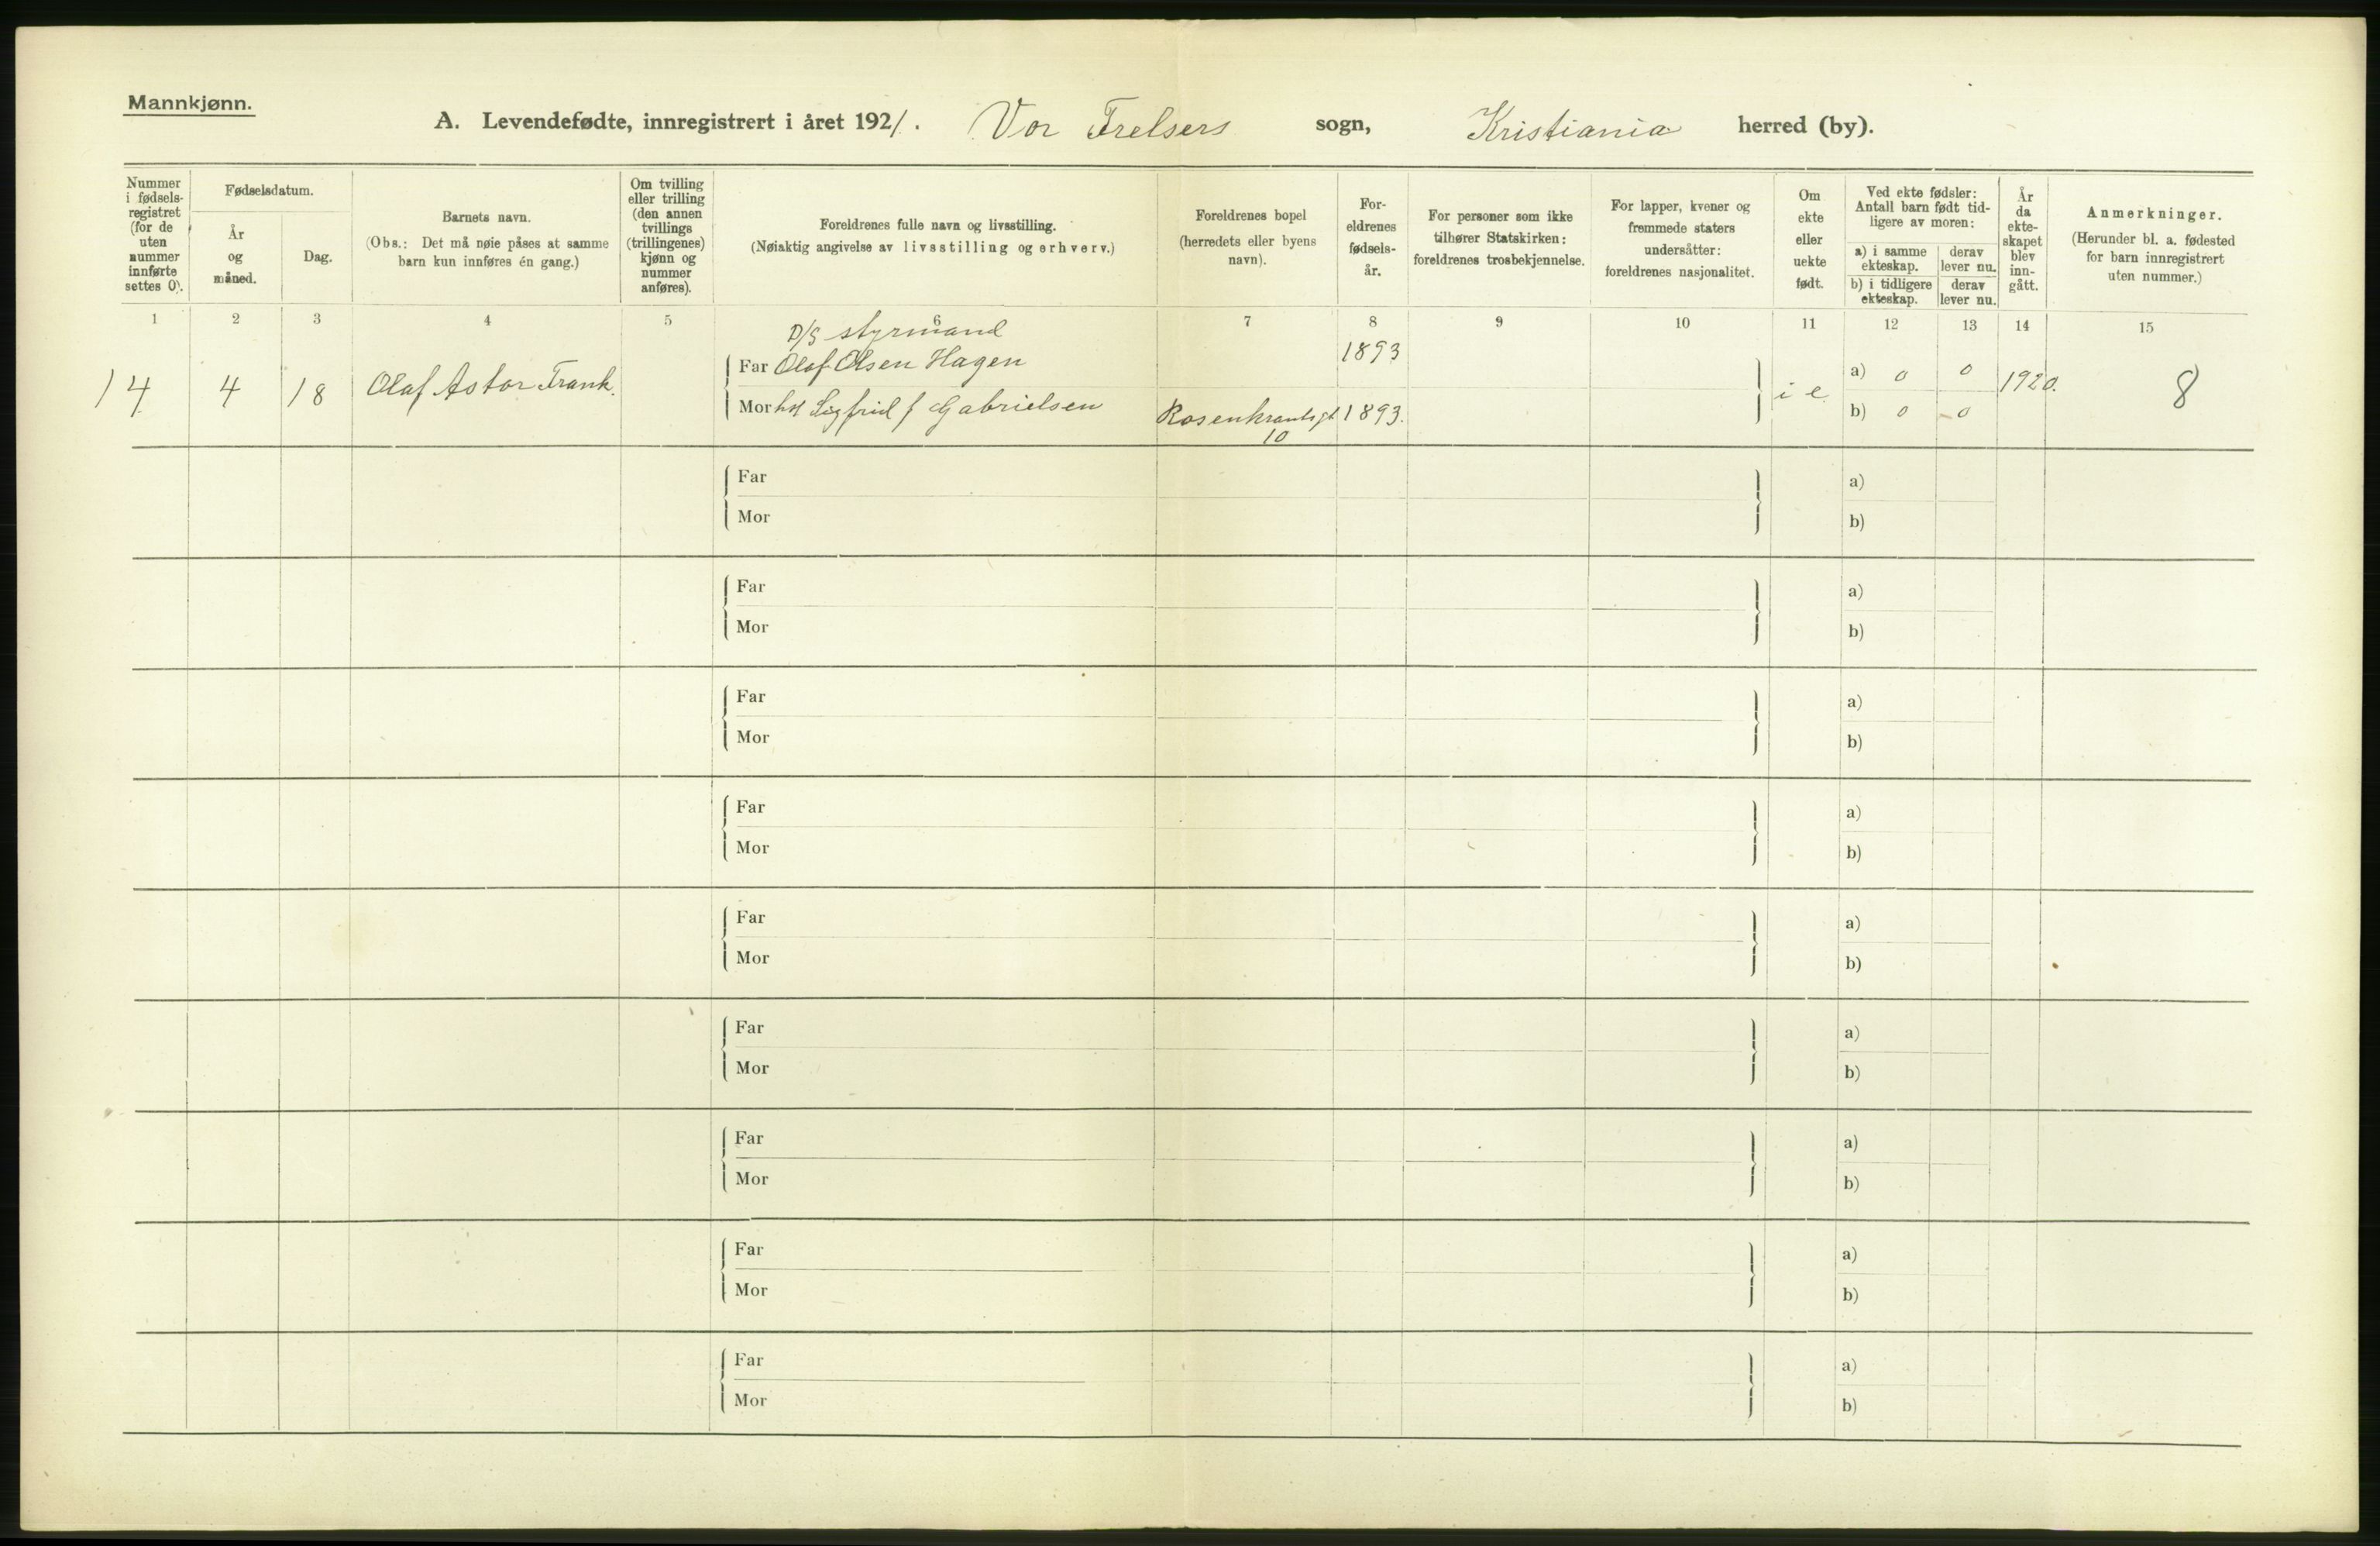 Mannkjønn.
A. Levendefødte, innregistrert i året 1921. Vor Frelsers sogn, Kristiania herred (by).
Nummer i fødsels-registret (for de uten nummer innførte settes 0).
Fødselsdatum.
År og måned.
Dag.
Barnets navn.
(Obs.: Det må nøie påses at samme barn kun innføres én gang.)
Om tvilling eller trilling (den annen tvillings (trillingenes) kjønn og nummer anføres).
Foreldrenes fulle navn og livsstilling.
(Nøiaktig angivelse av livsstilling og erhverv.)
Foreldrenes bopel (herredets eller byens navn).
For-eldrenes fødsels-år.
For personer som ikke tilhører Statskirken: foreldrenes trosbekjennelse.
For lapper, kvener og fremmede staters undersåtter: foreldrenes nasjonalitet.
Om ekte eller uekte født.
Ved ekte fødsler: Antall barn født tid-ligere av moren:
a) i samme ekteskap.
derav lever nu.
b) i tidligere ekteskap.
derav lever nu.
År da ekte-skapet blev inn-gått.
Anmerkninger.
(Herunder bl. a. fødested for barn innregistrert uten nummer.)
1 2 3 4 5 6 7 8 9 10 11 12 13 14 15
D/S styrmand
Far Olaf Olsen Hagen 1893
14 4 18 Olaf Astor Frank. i e. a) 0 0 1920. 8
Mor hst Sigfrid f Gabrielsen Rosenkrantzgt 10 1893. b) 0 0
Far a)
Mor b)
Far a)
Mor b)
Far a)
Mor b)
Far a)
Mor b)
Far a)
Mor b)
Far a)
Mor b)
Far a)
Mor b)
Far a)
Mor b)
Far a)
Mor b)